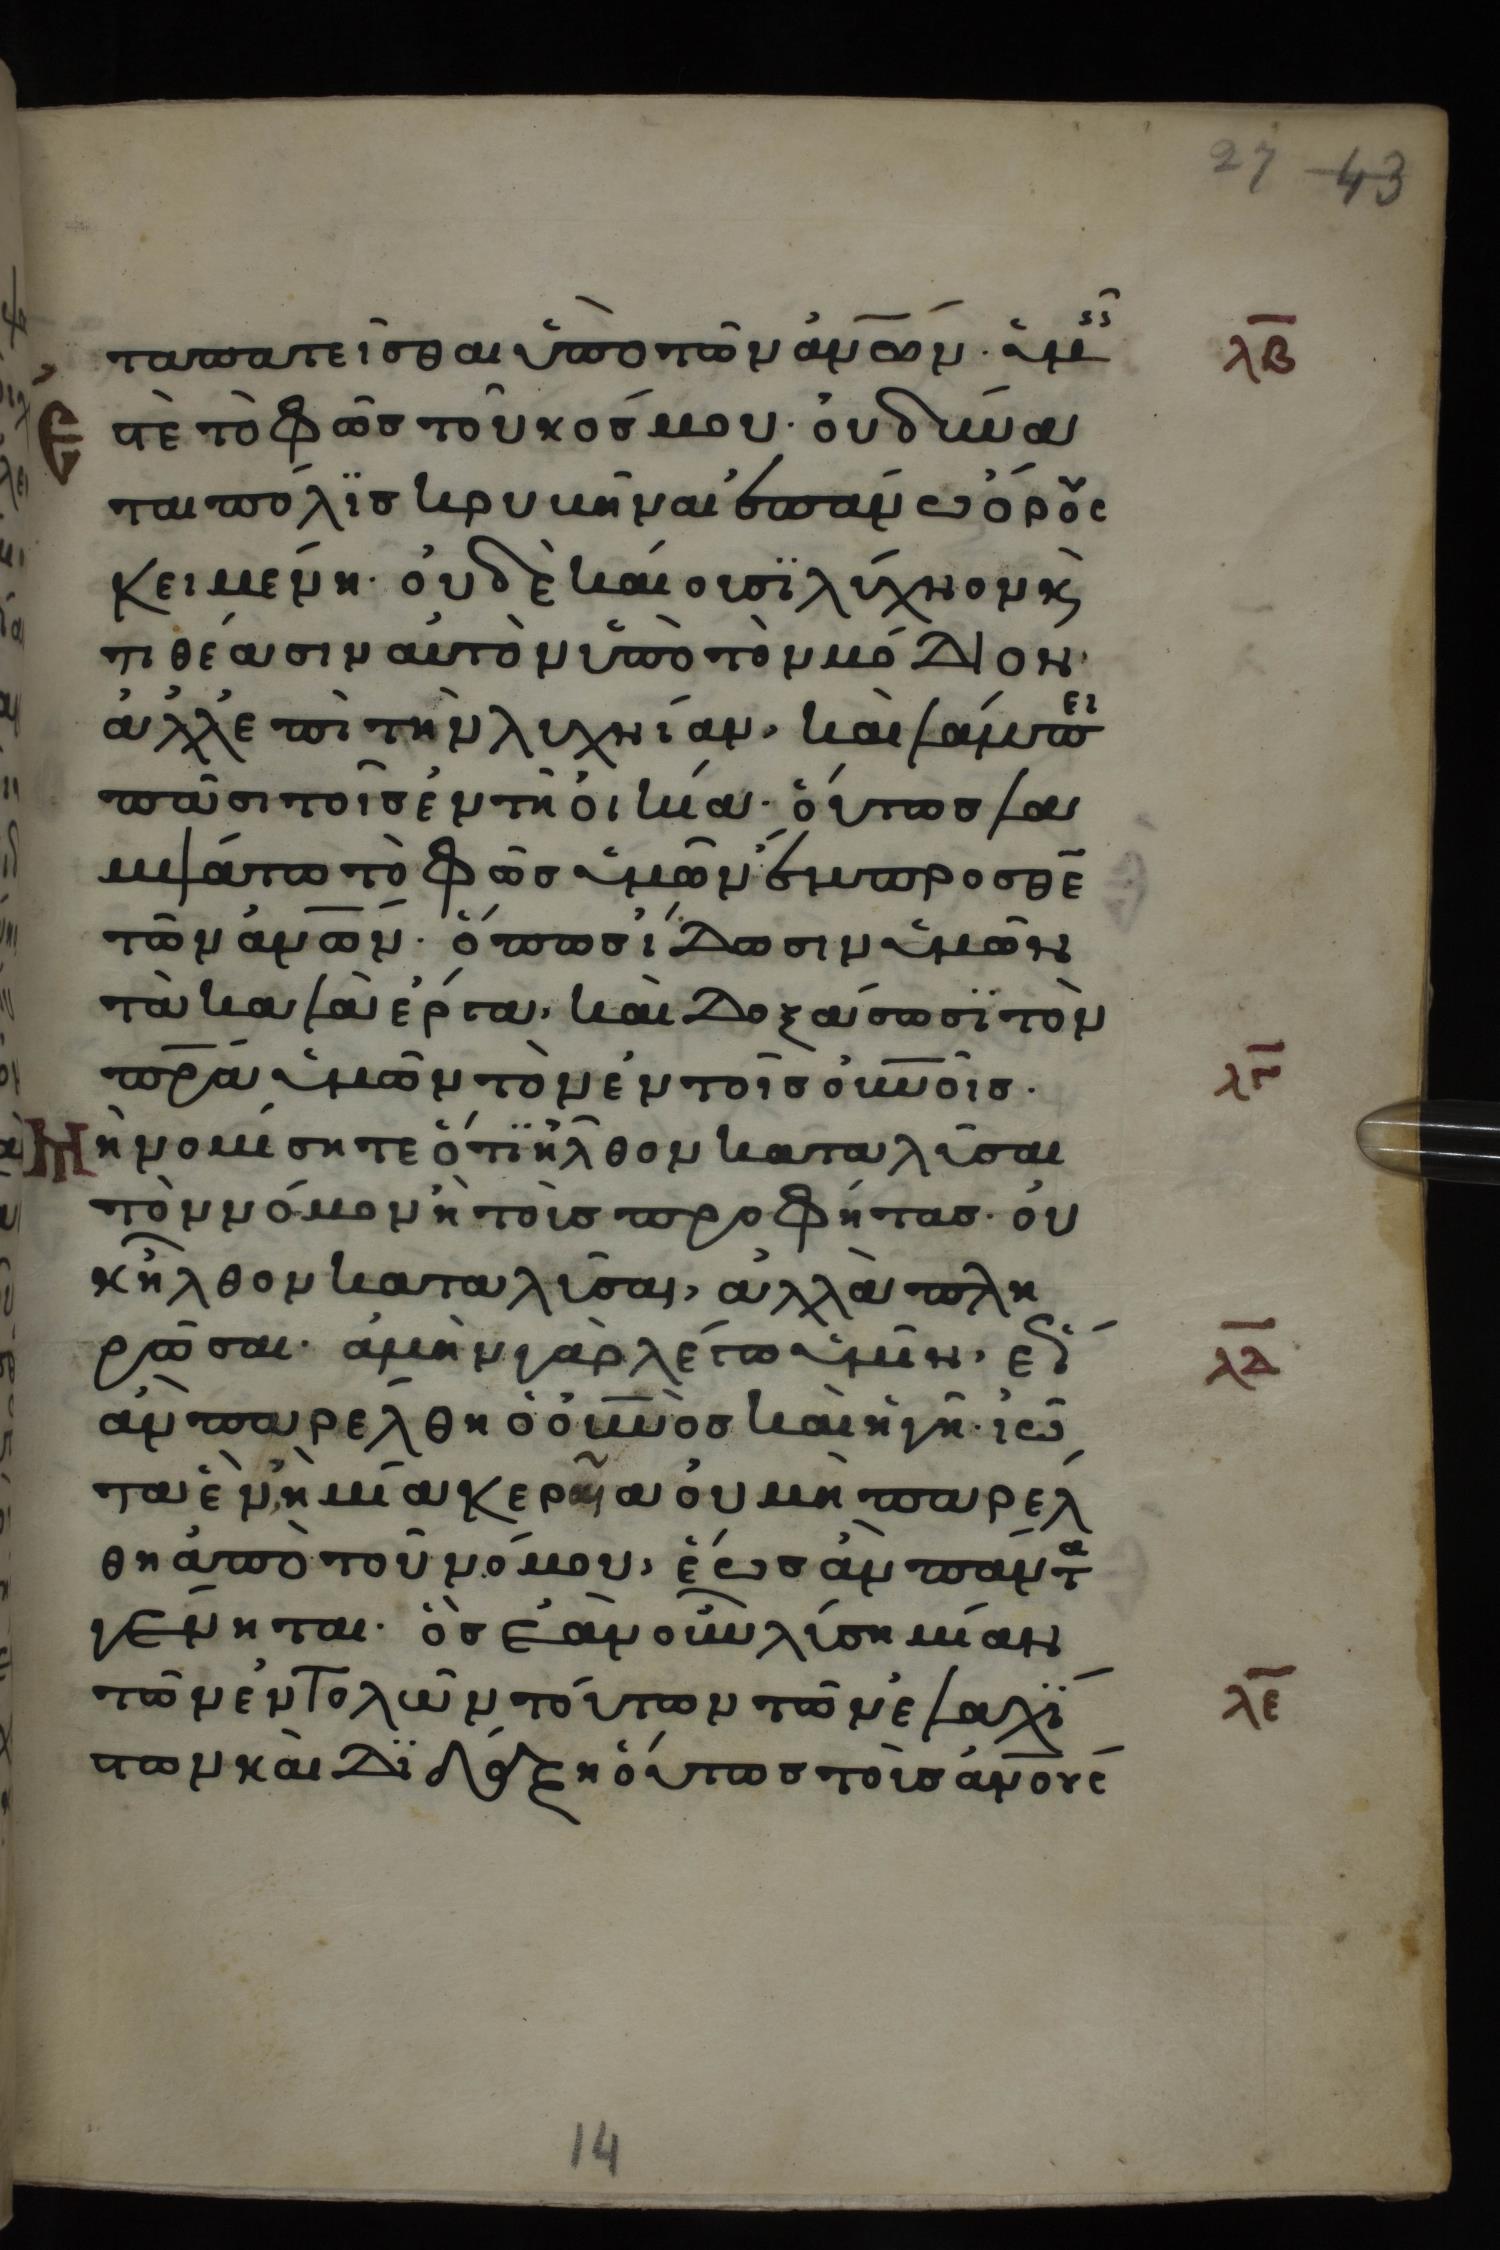 27 43
ταπατεῖσθαι ὑπὸ τῶν ἀν̅ω̅ν· ὑμεῖς λβ
ἐστὲ τὸ φῶς τοῦ κόσμου· οὐ δύνα
ται πόλϊς κρυβῆναι ἐπάνω ὄρους
κειμένη· οὐδὲ καίουσϊ λύχνον κ̀
τιθέασιν αὐτὸν ὑπὸ τὸν μόδιον·
ἀλλ' ἐπὶ τὴν λυχνίαν, καὶ λάμπει
πᾶσι τοῖς ἐν τῇ οἰκία· οὕτως λα
μψάτω τὸ φῶς ὑμῶν ἔμπροσθε̅
τῶν ἀν̅ω̅ν· ὅπως ἴδωσιν ὑμῶν
τὰ καλὰ ἔργα, καὶ δοξάσωσϊ τὸν
π̅ρ̅α ὑμῶν τὸν ἐν τοῖς οὐ̅ν̅οῖς· λγ
Μὴ νομίσητε ὅτϊ ἦλθον καταλῦσαι
τὸν νόμον ἢ τοὺς προφήτας· οὐ
κ ἦλθον καταλῦσαι, ἀλλὰ πλη
ρῶσαι· ἀμὴν γὰρ λέγω ὑμῖν, ἕως λδ
ἂν παρέλθη ὁ οὐ̅ν̅ὸς καὶ ἡ γῆ· ἰῶ
τα ἓν ἢ μία κεραία οὐ μὴ παρέλ
θη ἀπὸ τοῦ νόμου, ἕως ἂν πάντα
γένηται· ὃς ἐὰν οὖν λύση μίαν
τῶν ἐντολῶν τούτων τῶν ἐλαχΐ λε
στων καὶ δϊδάξη οὕτως τοὺς ἀν̅ο̅υς
14